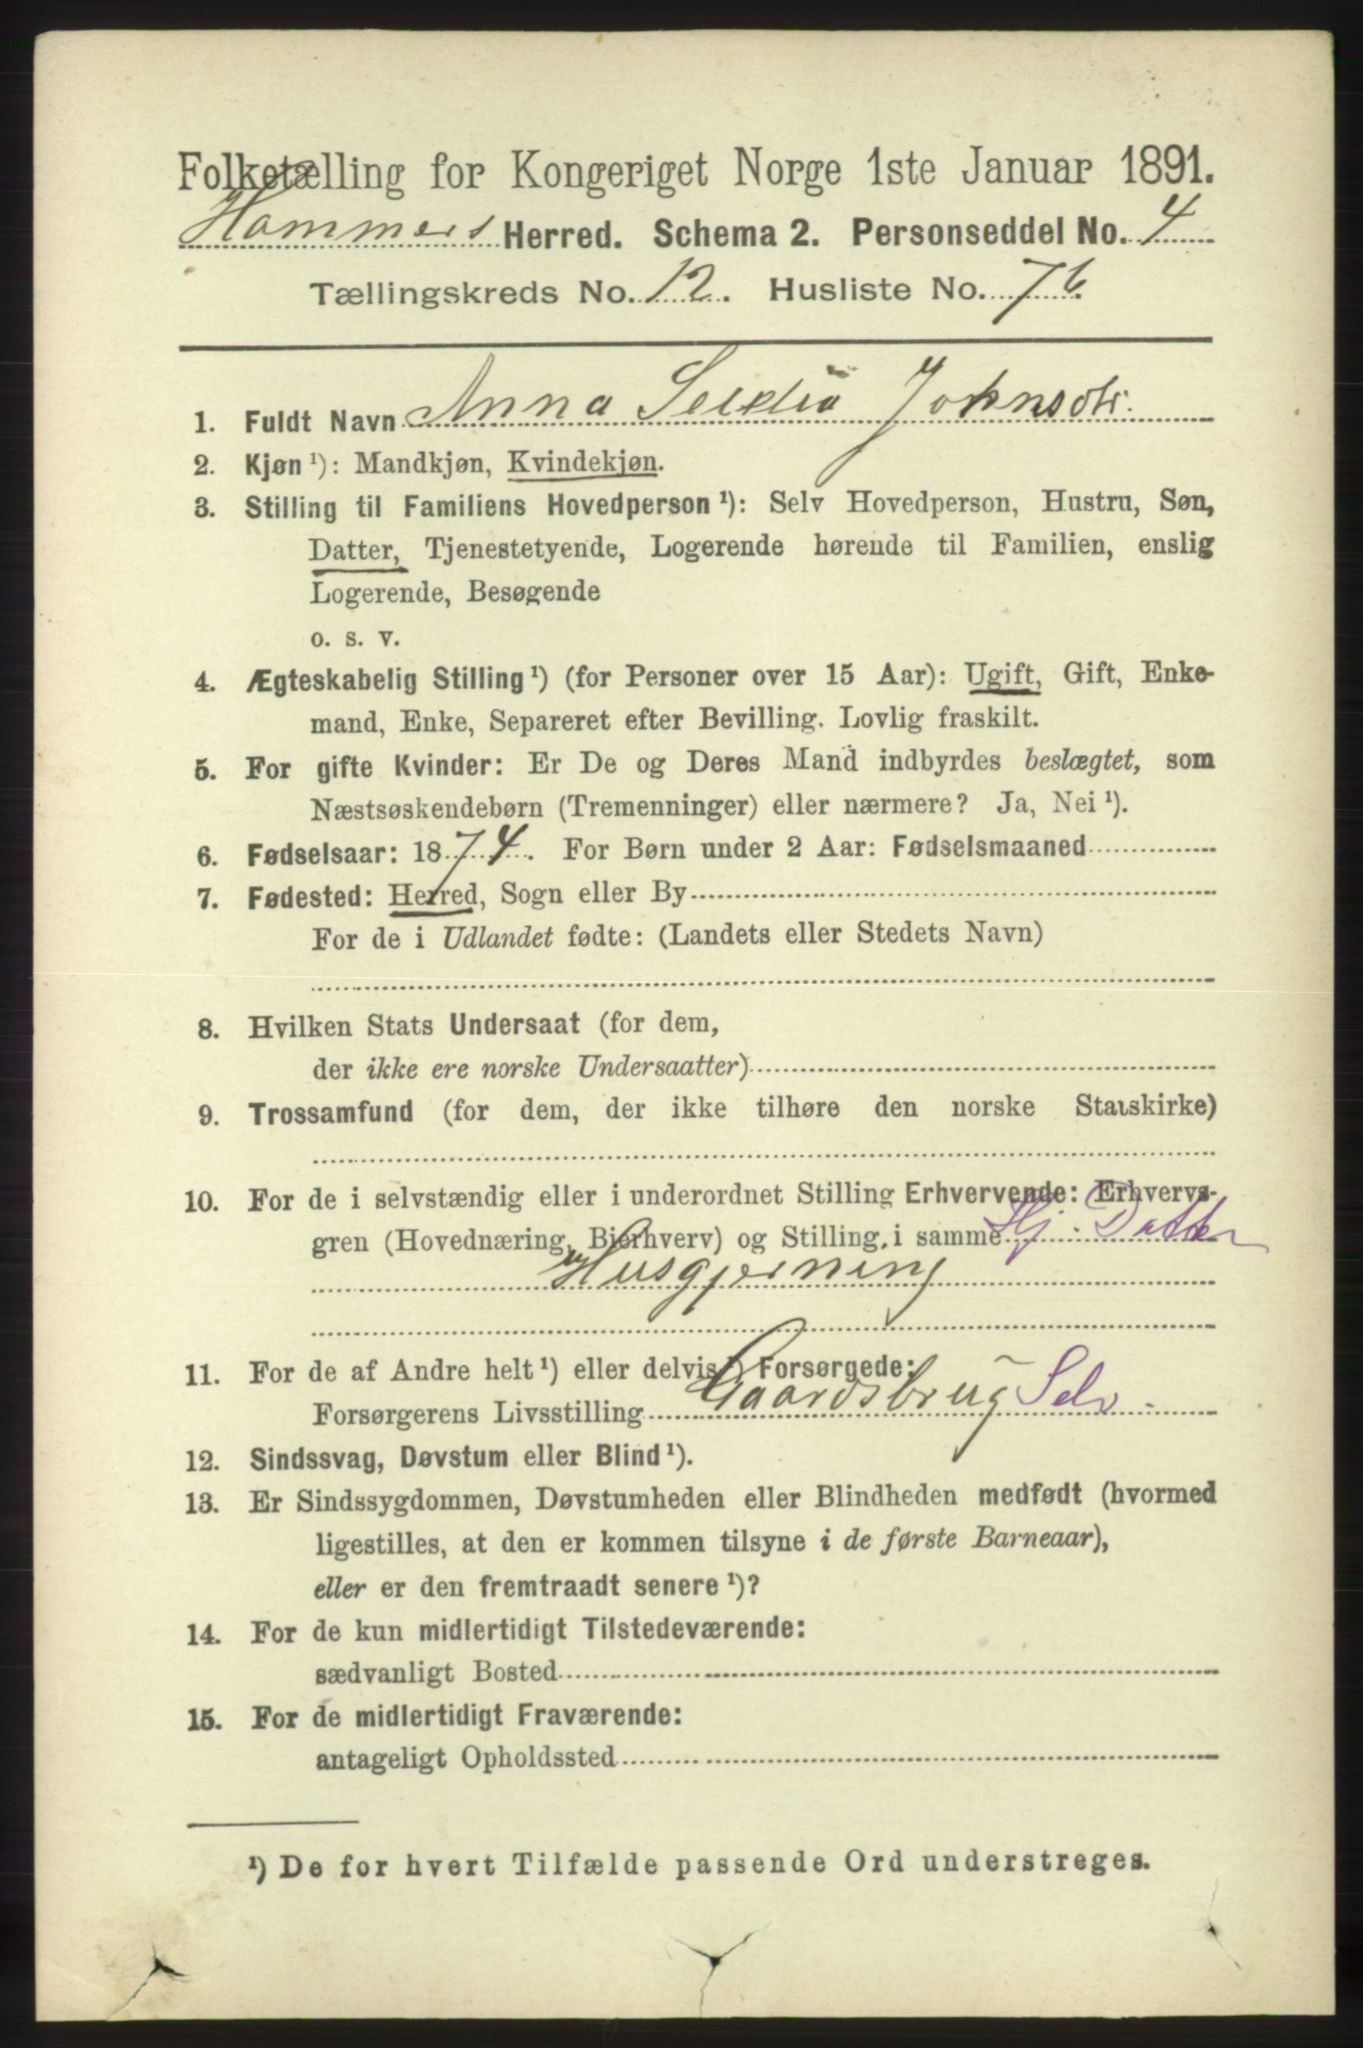 Folketælling for Kongeriget Norge 1ste Januar 1891.
Hammers Herred. Schema 2. Personseddel No. 4
Tællingskreds No. 12. Husliste No. 76.
1. Fuldt Navn Anna Johnsdtr.
2. Kjøn ¹): Mandkjøn, Kvindekjøn.
3. Stilling til Familiens Hovedperson ¹): Selv Hovedperson, Hustru, Søn,
Datter, Tjenestetyende, Logerende hørende til Familien, enslig
Logerende, Besøgende
o. s. v.
4. Ægteskabelig Stilling ¹) (for Personer over 15 Aar): Ugift, Gift, Enke-
mand, Enke, Separeret efter Bevilling. Lovlig fraskilt.
5. For gifte Kvinder: Er De og Deres Mand indbyrdes beslægtet, som
Næstsøskendebørn (Tremenninger) eller nærmere? Ja, Nei ¹).
6. Fødselsaar: 1874. For Børn under 2 Aar: Fødselsmaaned
7. Fødested: Herred, Sogn eller By
For de i Udlandet fødte: (Landets eller Stedets Navn)
8. Hvilken Stats Undersaat (for dem,
der ikke ere norske Undersaatter)
9. Trossamfund (for dem, der ikke tilhøre den norske Statskirke)
10. For de i selvstændig eller i underordnet Stilling Erhvervende: Erhvervs-
gren (Hovednæring, Bierhverv) og Stilling i samme Hj. Datter
Husgjerning
11. For de af Andre helt ¹) eller delvis ¹) Forsørgede:
Forsørgerens Livsstilling Gaardsbrug Selv.
12. Sindssvag, Døvstum eller Blind ¹).
13. Er Sindssygdommen, Døvstumheden eller Blindheden medfødt (hvormed
ligestilles, at den er kommen tilsyne i de første Barneaar),
eller er den fremtraadt senere ¹)?
14. For de kun midlertidigt Tilstedeværende:
sædvanligt Bosted
15. For de midlertidigt Fraværende:
antageligt Opholdssted
¹) De for hvert Tilfælde passende Ord understreges.